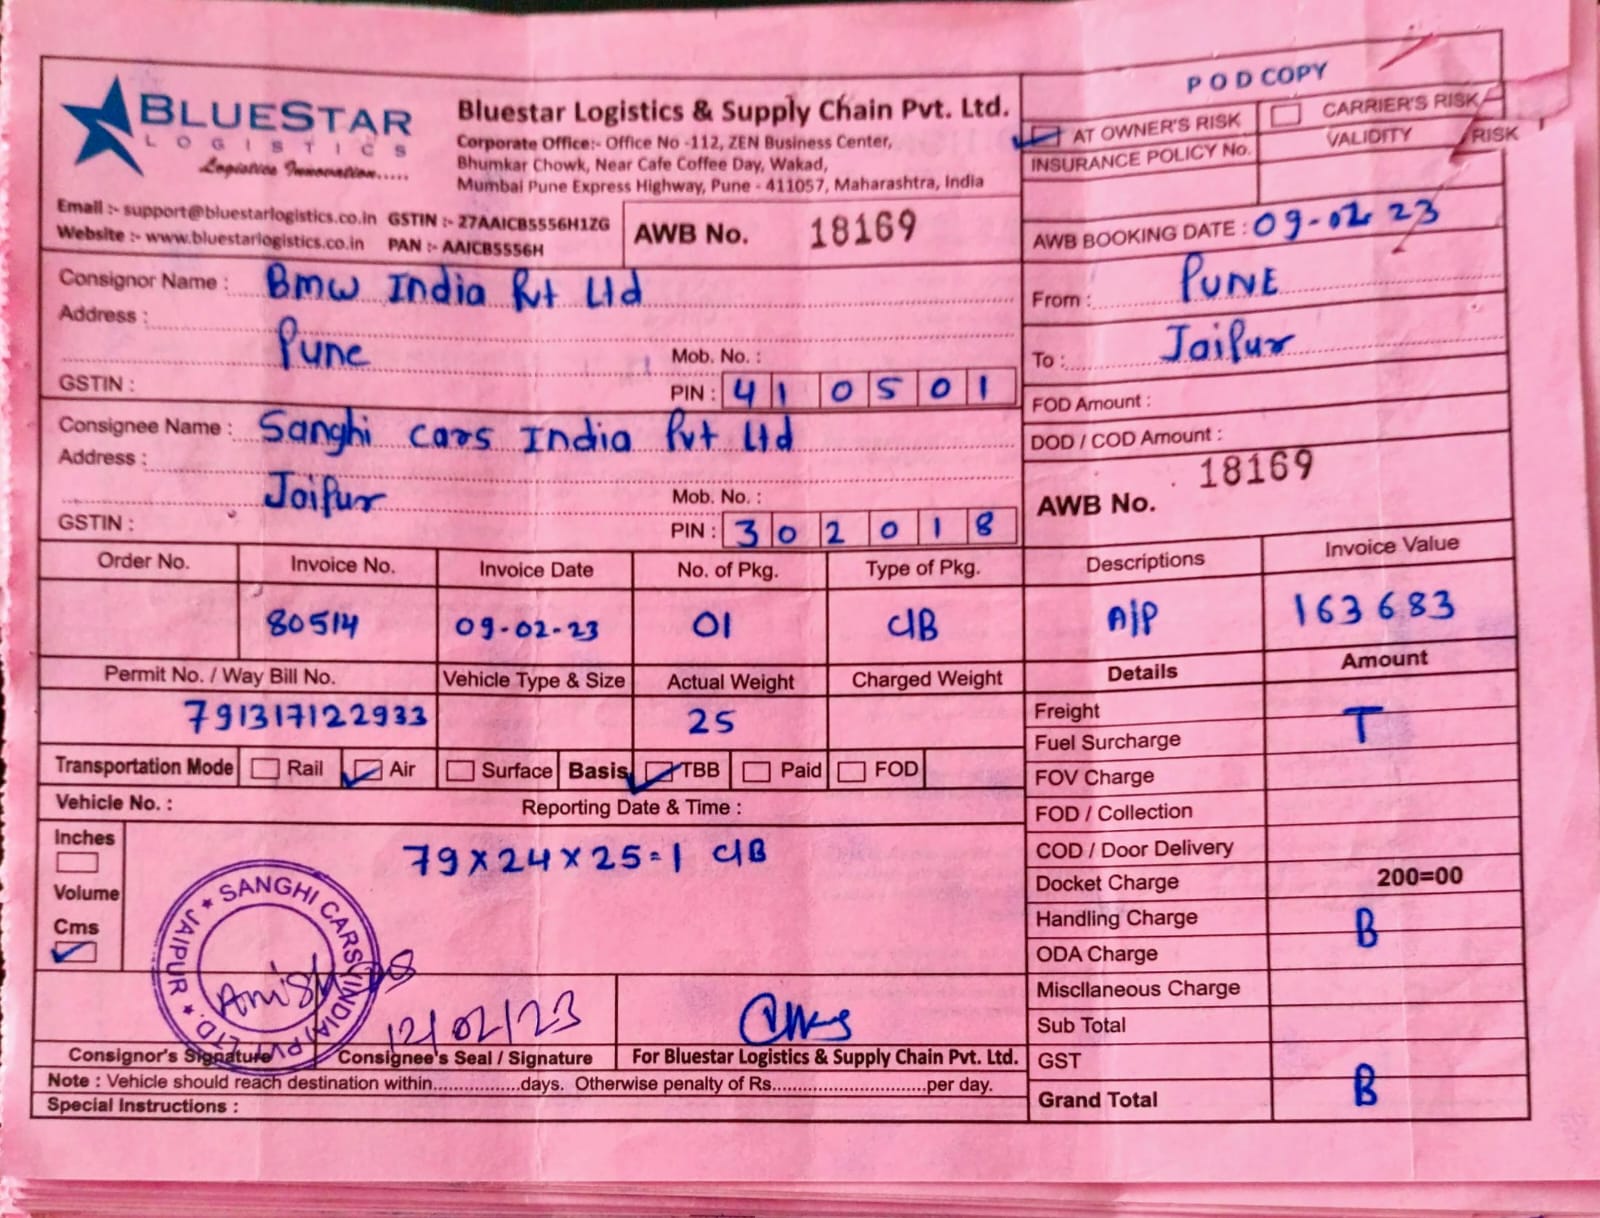 POD COPY
BLUESTAR
LOGISTICS
Logistics Innovation.....
Bluestar Logistics & Supply Chain Pvt. Ltd.
Corporate Office:- Office No -112, ZEN Business Center,
Bhumkar Chowk, Near Cafe Coffee Day, Wakad,
Mumbai Pune Express Highway, Pune - 411057, Maharashtra, India
AT OWNER'S RISK CARRIER'S RISK
INSURANCE POLICY No. VALIDITY RISK
Email :- support@bluestarlogistics.co.in GSTIN :- 27AAICB5556H1ZG
Website :- www.bluestarlogistics.co.in PAN :- AAICB5556H
AWB No. 18169
AWB BOOKING DATE : 09-02-23
Consignor Name : Bmw India Pvt Ltd
Address :
Pune
Mob. No. :
GSTIN : PIN : 410501
From : PUNE
To : Jaipur
Consignee Name : Sanghi cars India Pvt Ltd
Address :
Jaipur
Mob. No. :
GSTIN : PIN : 302018
FOD Amount :
DOD / COD Amount :
18169
AWB No.
Order No. Invoice No. Invoice Date No. of Pkg. Type of Pkg. Descriptions Invoice Value
80514 09-02-23 01 C/B A/P 163683
Permit No. / Way Bill No. Vehicle Type & Size Actual Weight Charged Weight Details Amount
791317122933 25
Transportation Mode Rail Air Surface Basis TBB Paid FOD
Vehicle No. : Reporting Date & Time :
Inches
Volume
Cms
79x24x25=1 C/B
Freight
T
Fuel Surcharge
FOV Charge
FOD / Collection
COD / Door Delivery
Docket Charge 200=00
Handling Charge
B
ODA Charge
Miscllaneous Charge
Sub Total
GST
Grand Total B
SANGHI CARS (INDIA) PVT. LTD. ★ JAIPUR ★
12/02/23
Consignor's Signature Consignee's Seal / Signature For Bluestar Logistics & Supply Chain Pvt. Ltd.
Note : Vehicle should reach destination within................days. Otherwise penalty of Rs............................per day.
Special Instructions :